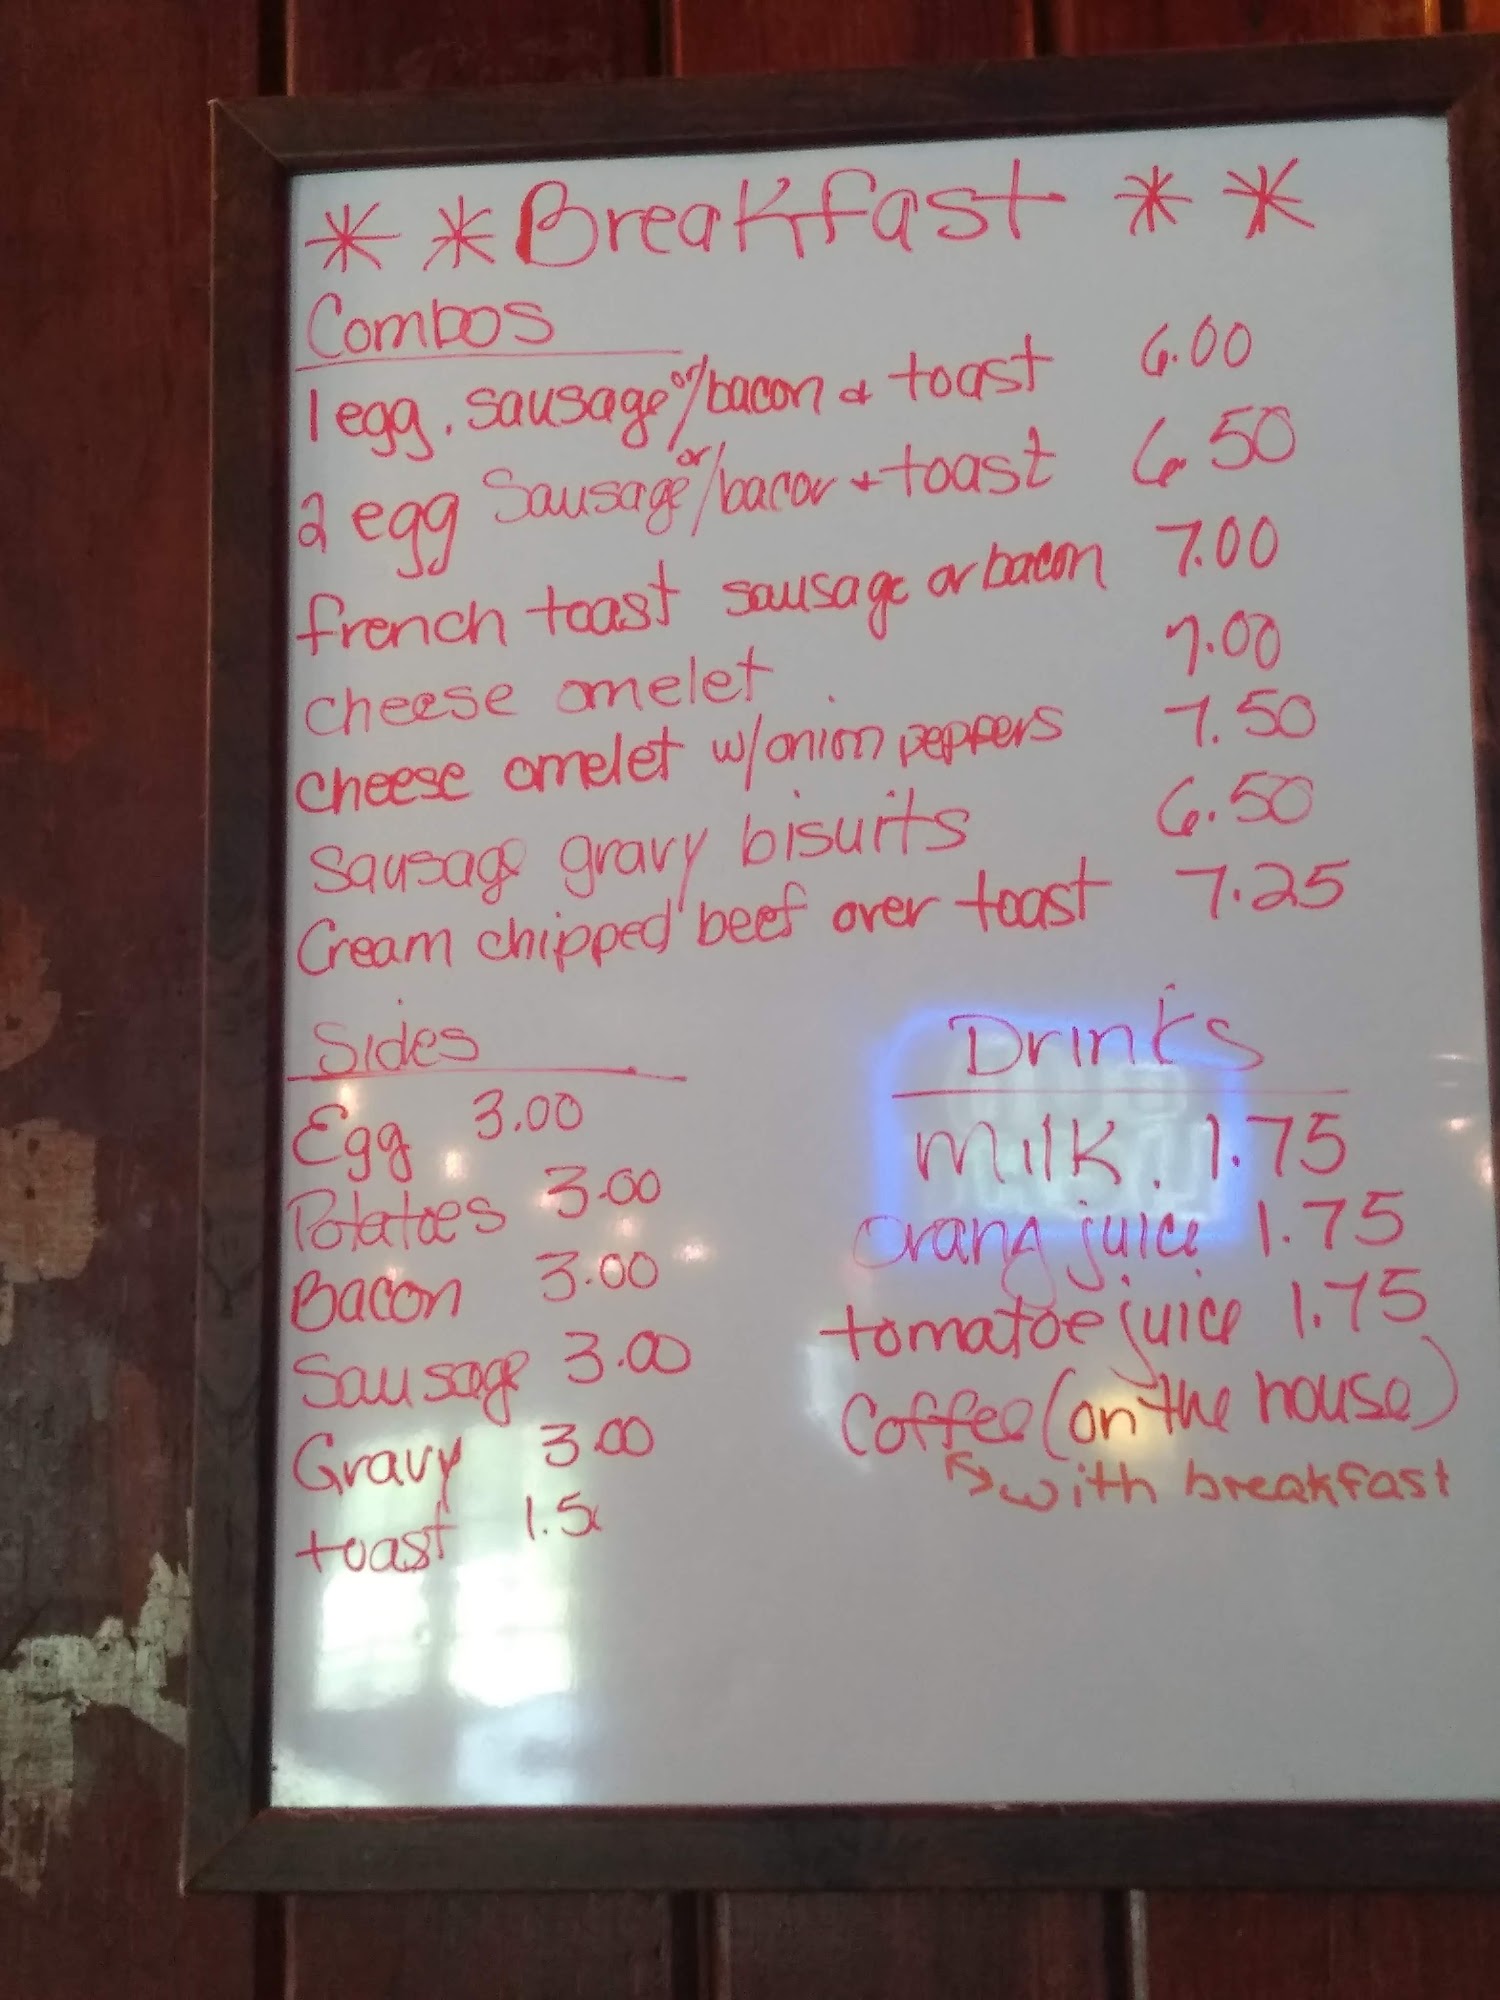 * * Breakfast * *
Combos
1 egg, sausage or/bacon & toast 6.00
2 egg Sausage or/bacon + toast 6.50
french toast sausage or bacon 7.00
cheese omelet 7.00
cheese omelet w/onion peppers 7.50
Sausage gravy bisuits 6.50
Cream chipped beef over toast 7.25
Sides
Egg 3.00
Potatoes 3.00
Bacon 3.00
Sausage 3.00
Gravy 3.00
toast 1.50
Drinks
Milk. 1.75
orang juice 1.75
tomatoe juice 1.75
Coffee (on the house)
with breakfast